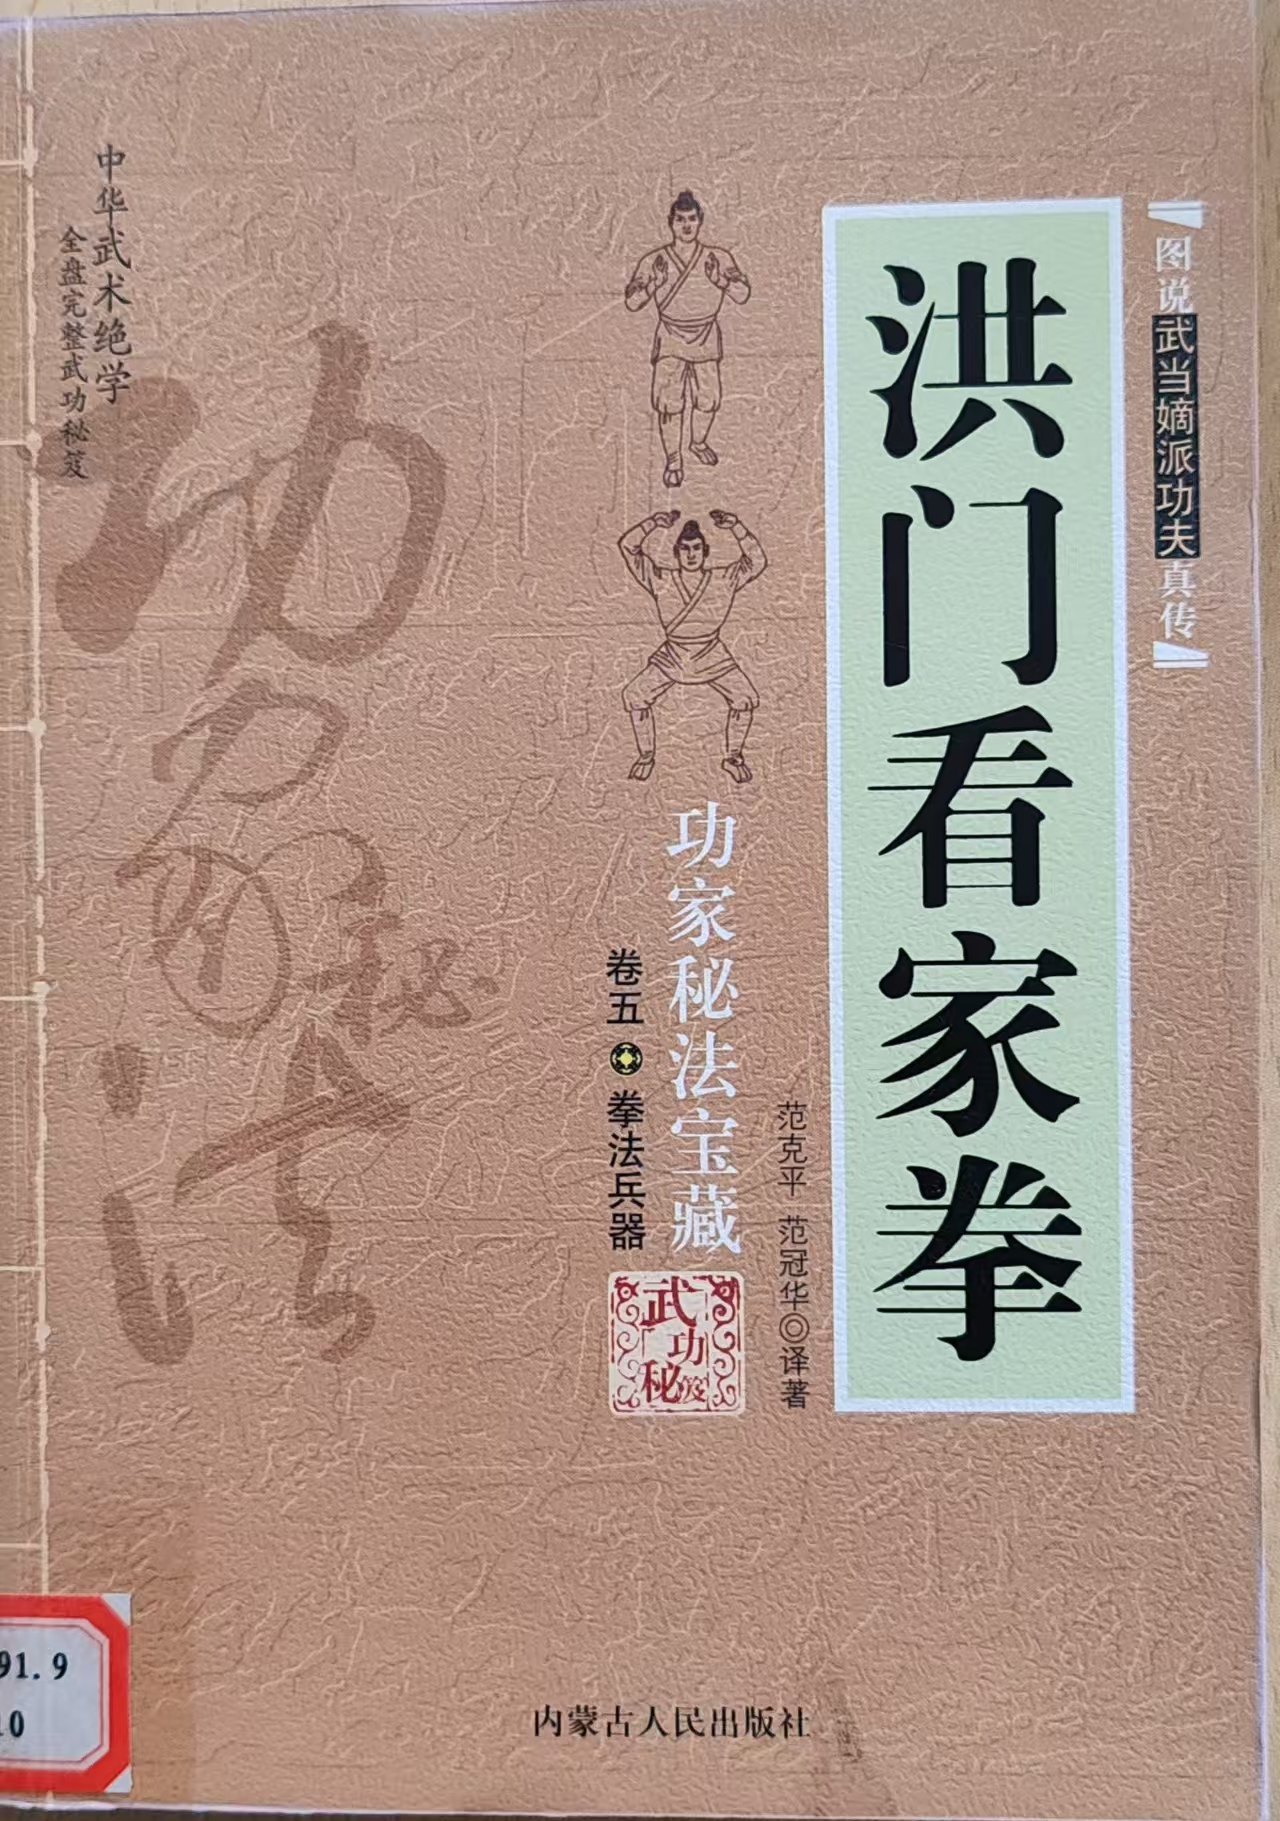 图说武当嫡派功夫真传
洪门看家拳
范克平 范冠华◎译著
功家秘法宝藏
卷五 拳法兵器
武功秘笈
中华武术绝学
全盘完整武功秘笈
功家秘法
内蒙古人民出版社
91.9
10